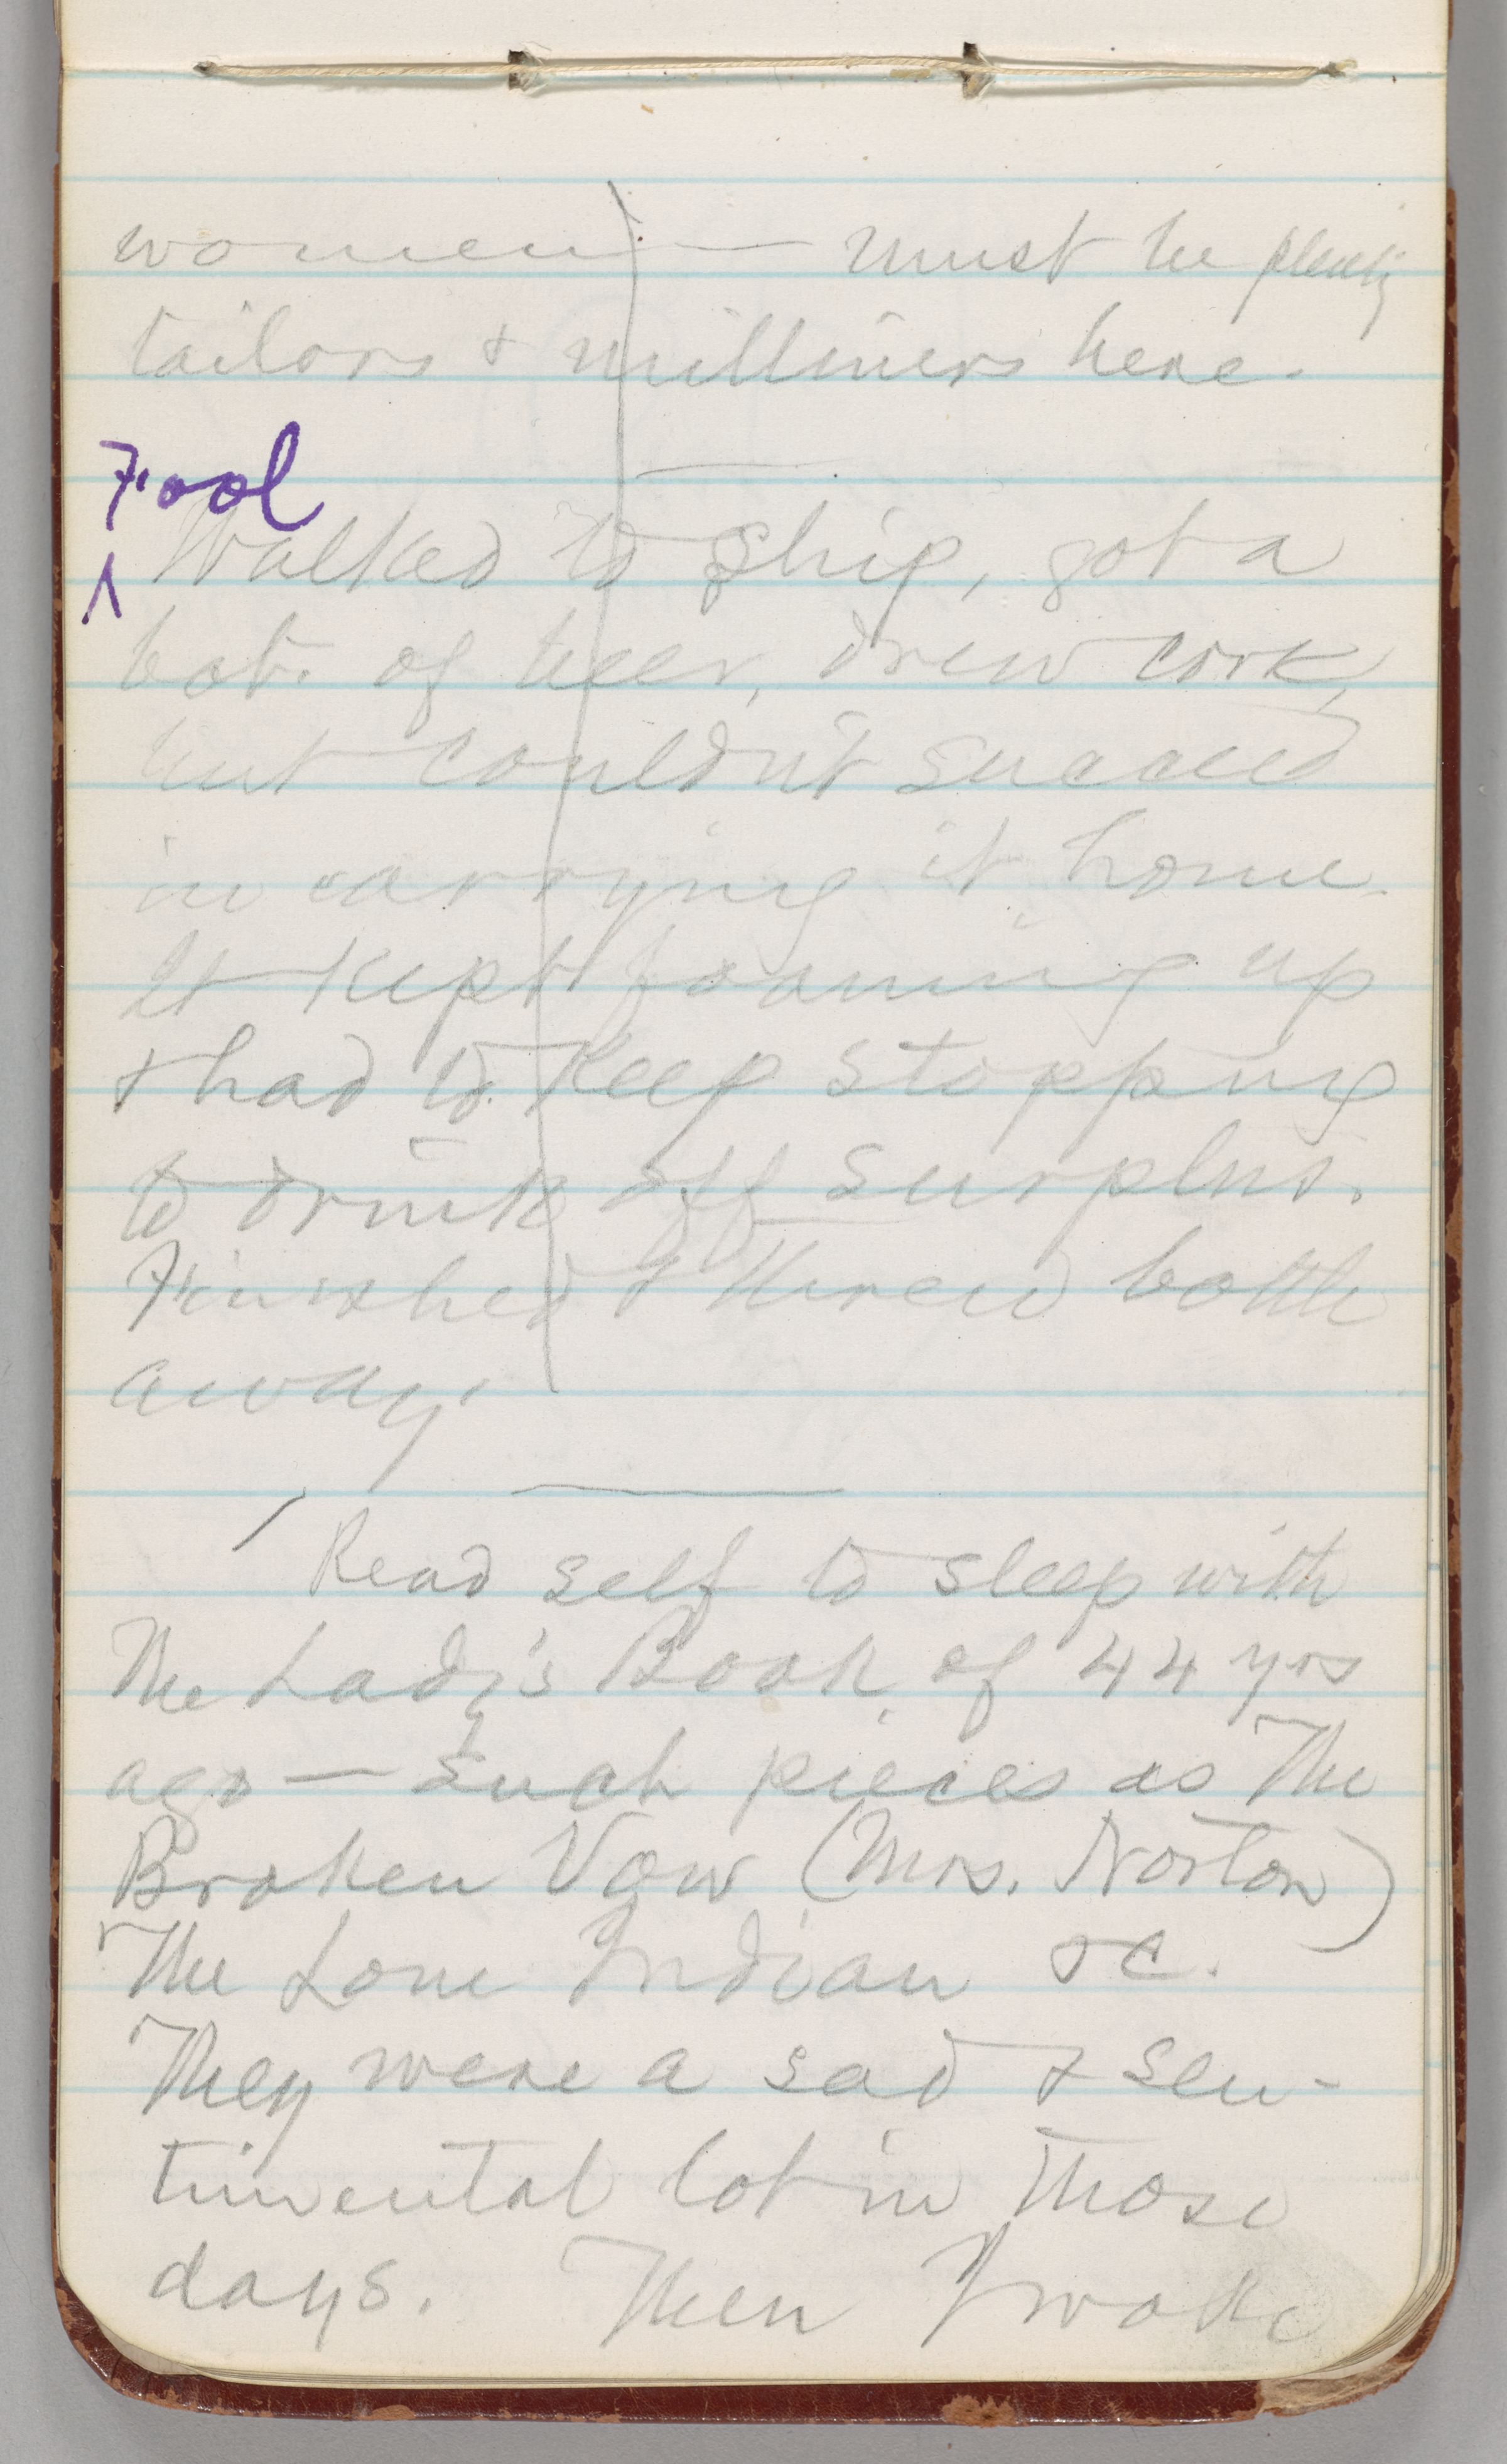 women — must be plenty
tailors & milliners here.
Fool
^ Walked to ship, got a
bot. of beer, drew cork,
but couldn't succeed
in carrying it home.
It kept foaming up
& had to keep stopping
to drink off surplus.
Finished & threw bottle
away.
Read self to sleep with
The Lady's Book of 44 yrs
ago — Such pieces as The
Broken Vow (Mrs. Norton)
The Lone Indian &c.
They were a sad & sen-
timental lot in those
days. Then I woke